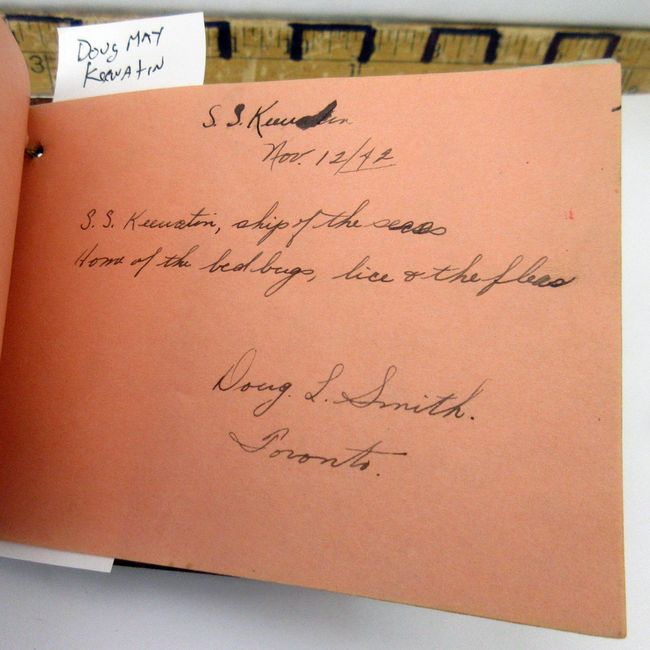 Doug MAY
KEEWATIN
3
S. S. Keewatin
Nov. 12/42
S. S. Keewatin, ship of the seas
Home of the bedbugs, lice & the fleas
Doug. L. Smith.
Toronto.